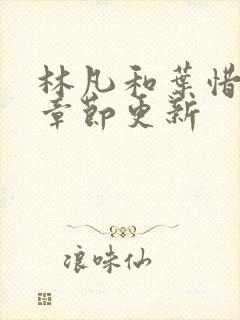 林凡和葉惜
章節更新
浪味仙